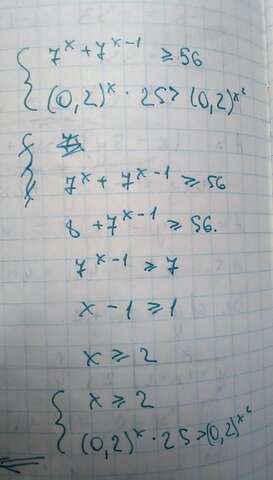 { 7^x + 7^{x-1} ≥ 56
(0,2)^x · 25 > (0,2)^{x²}
{
7^x + 7^{x-1} ≥ 56
8 + 7^{x-1} ≥ 56.
7^{x-1} ≥ 7
x - 1 ≥ 1
x ≥ 2
{ x ≥ 2
(0,2)^x · 25 > (0,2)^{x²}